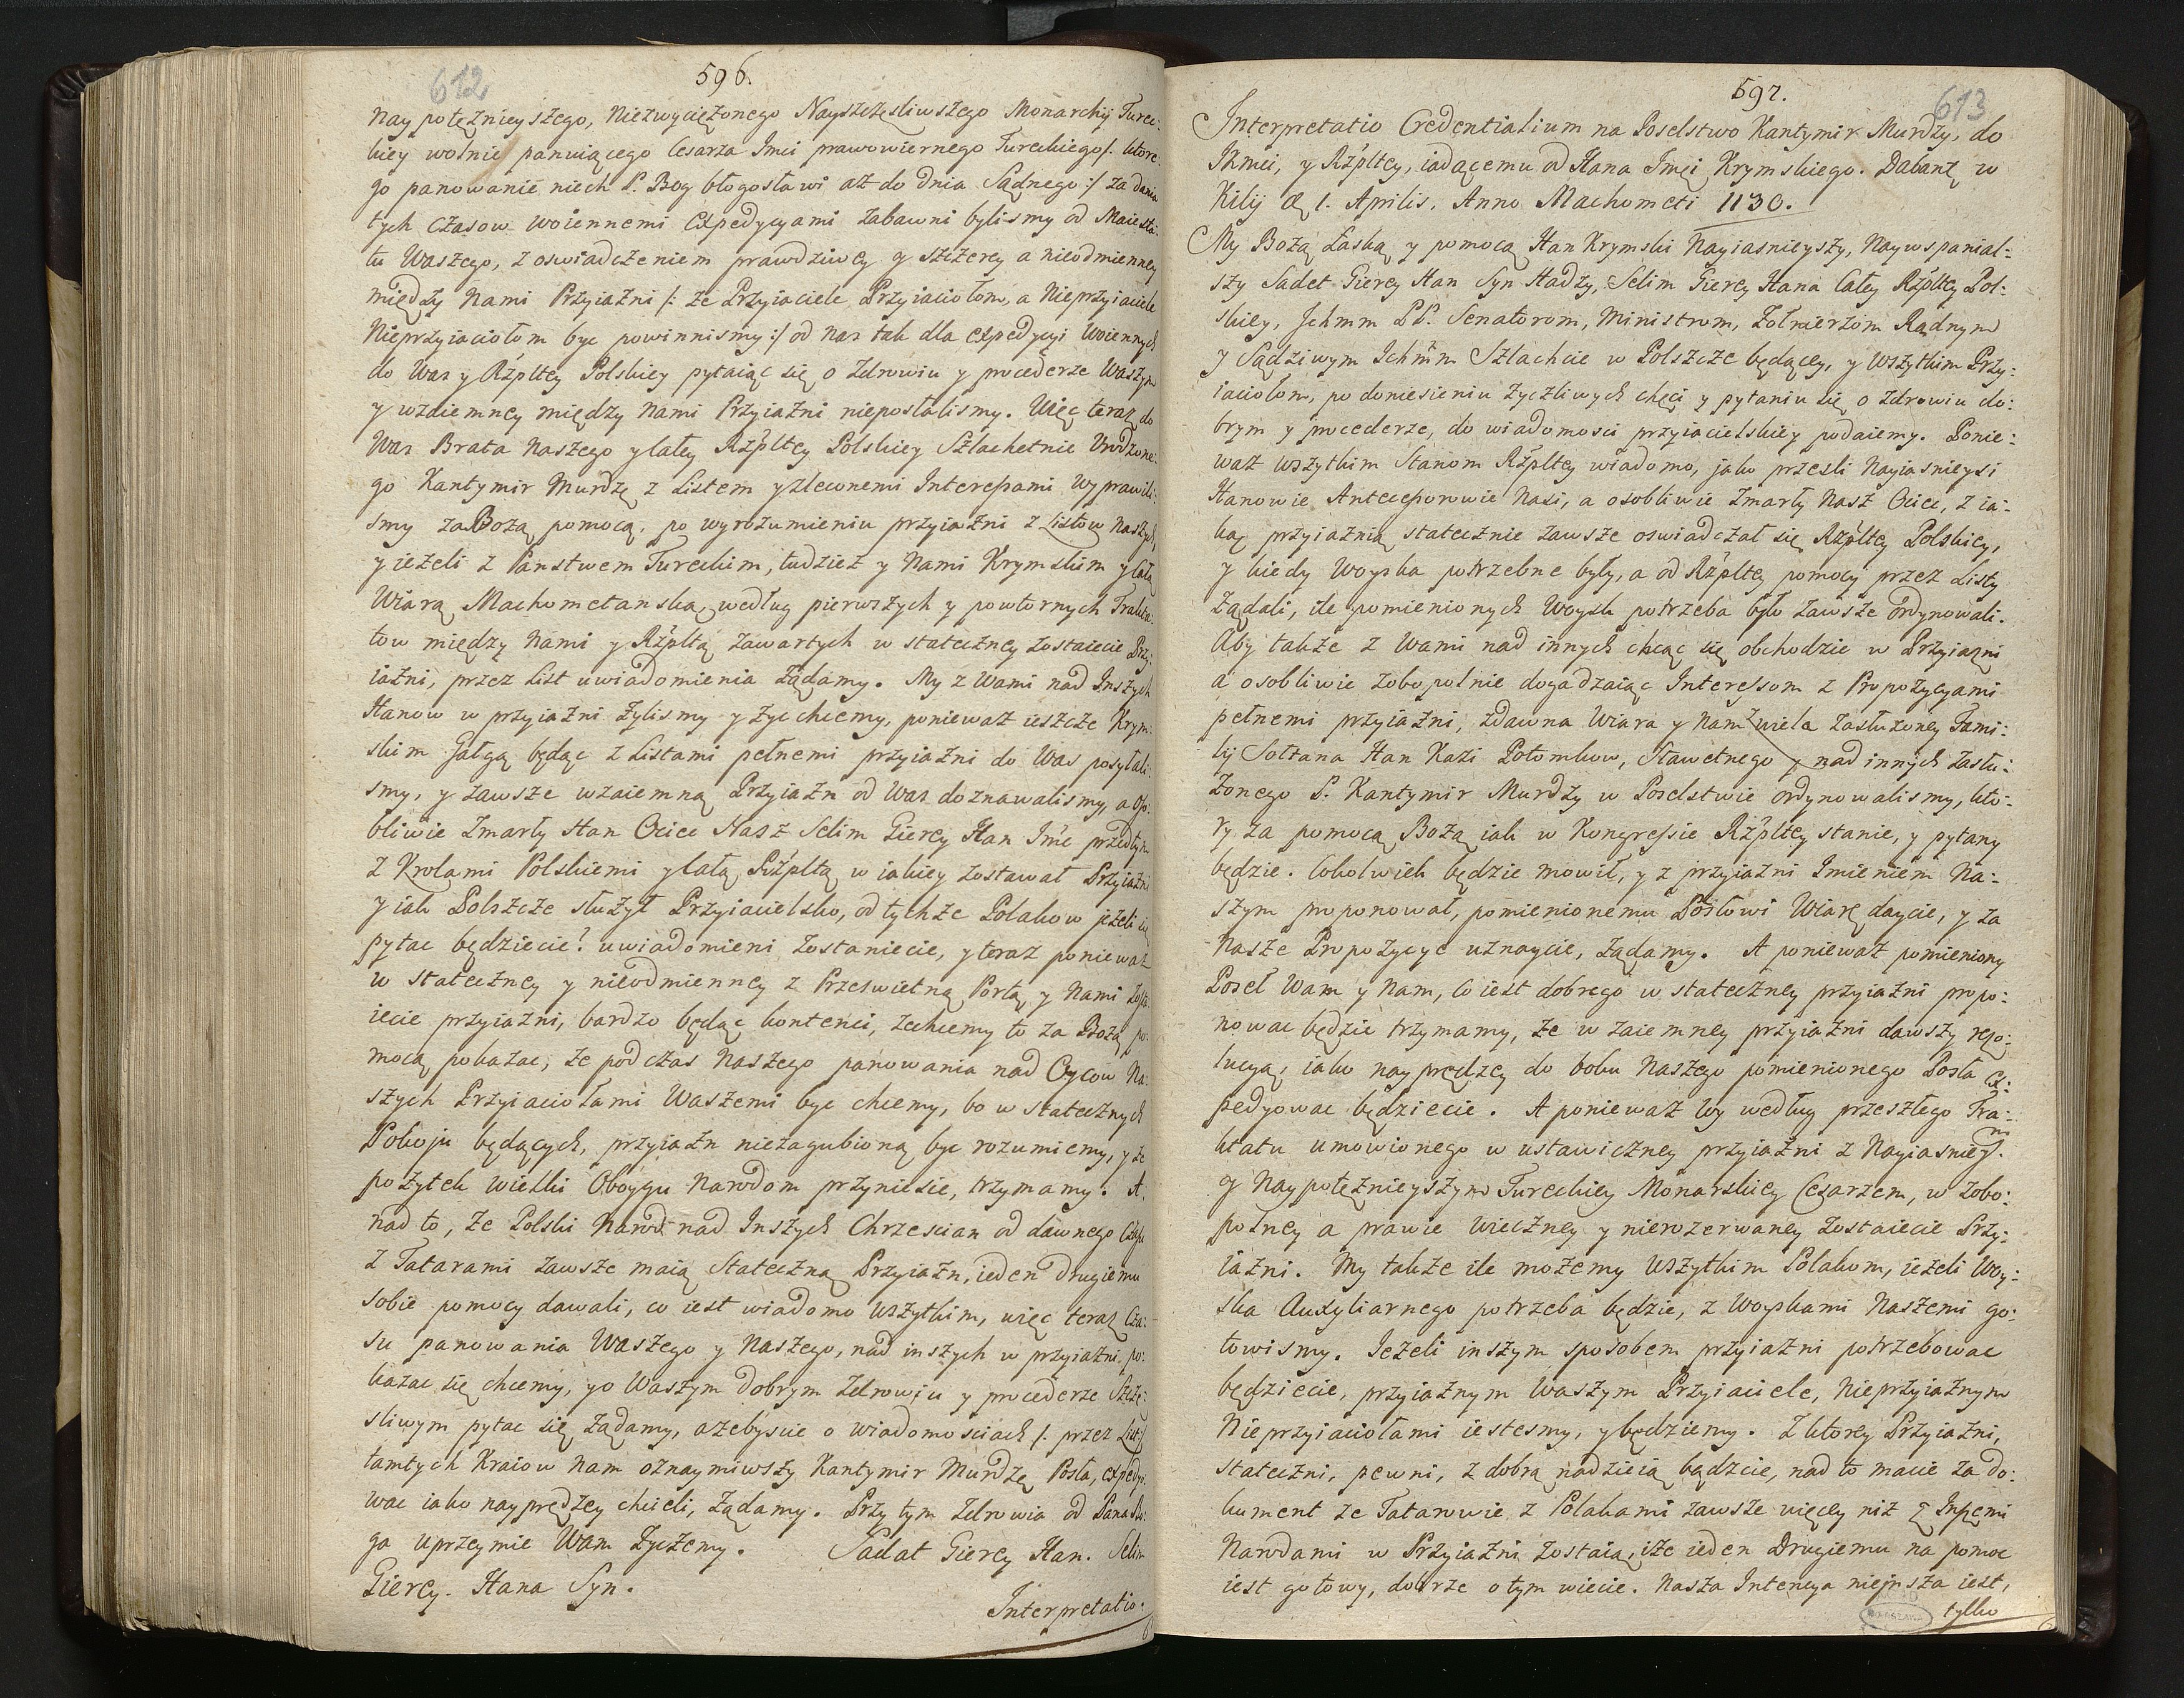 612
596.
naypotężnieyszego, niezwyciężonego Nayszczęsliwszego Monarchij Turec:
kiey wolnie panuiącego Cesarza Imci prawowiernego Tureckiego /: które:
go panowanie niech P. Bog błogosławi aż do dnia Sądnego :/ za dania
tych czasow woiennemi Expedycyami zabawni bylismy od Maiesta:
tu Waszego, z oswiadczeniem prawdziwey y szczerey a nieodmienney
między nami Przyiaźni /: że Przyiaciele Przyiaciołom, a Nieprzyiaciele
Nieprzyiaciołom byc powinnismy :/ od nas tak dla expedycyi woiennych
do Was y Rzpltey Polskiey pytaiąc się o zdrowiu y procederze Waszym
y wzaiemney między nami Przyiaźni nieposłalismy. Więc teraz do
Was Brata naszego y całey Rzpltey Polskiey Szlachetnie Urodzone:
go Kantymir Murdzę z Listem y zleconemi Interessami wyprawili:
smy za Bożą pomocą, po wyrozumieniu przyiaźni z Listow naszych,
y ieżeli z Panstwem Tureckim, tudzież y nami Krymskim y całą
Wiarą Machometanską, według pierwszych y powtornych Trakta:
tow między nami y Rzpltą zawartych w stateczney zostaiecie Przy:
iaźni, przez List uwiadomienia żądamy. My z Wami nad Inszych
Hanow w przyiaźni żylismy y życ chcemy, ponieważ ieszcze Krym:
skim Gałgą będąc z Listami pełnemi przyiaźni do Was posyłali:
smy, y zawsze wzaiemną Przyiaźn od Was doznawalismy, a oso:
bliwie zmarły Han Ociec Nasz Selim Gierey Han Imc przedtym
z Krolami Polskiemi y całą Rzpltą w iakiey zostawał Przyiaźni
y iak Polszcze służył Przyiacielsko, od tychże Polakow jeżeli się
pytac będziecie? uwiadomieni zostaniecie, y teraz ponieważ
w stateczney y nieodmienney z Przeswietną Portą y nami zosta:
iecie przyiaźni, bardzo będąc kontenci, zechcemy to za Bożą po:
mocą pokazac, że podczas naszego panowania nad Oycow Na:
szych Przyiaciołami Waszemi byc chcemy, bo w statecznych
Pokoju będących, przyiaźn niezagubioną byc rozumiemy, y że
pożytek wielki Oboygu narodom przyniesie, trzymamy. A
nad to, że Polski narod nad Inszych Chrzescian od dawnego czasu
z Tatarami zawsze maią Stateczną Przyiaźn, ieden drugiemu
sobie pomocy dawali, co iest wiadomo wszytkim, więc teraz cza:
su panowania Waszego y naszego, nad inszych w przyiaźni po:
kazac się chcemy, y o Waszym dobrym zdrowiu y procederze Szczę:
sliwym pytac się żądamy, ażebyscie o wiadomosciach /: przez List :/
tamtych Kraiow nam oznaymiwszy Kantymir Murdzę Posła, expedyo:
wac iako nayprędzey chcieli, żądamy. Przytym zdrowia od Pana Bo:
ga uprzeymie Wam życzemy. Sadat Gierey Han. Selim
Gierey. Hana Syn.
Interpretatio:
597.
613
Interpretatio Credentialium na Poselstwo Kantymir Murdzy, do
JKmci, y Rzpltey, iadącemu od Hana Imci Krymskiego. Dabant w
Kilij d. 1. Aprilis. Anno Machometi 1130.
My Bożą Łaską y pomocą Han Krymski Nayiasnieyszy, Naywspanial:
szy Sadet Gierey Han Syn Hadzy, Selim Gierey Hana Całey Rzpltey Pol:
skiey, Jchmm PP. Senatorom, Ministrom, Żołnierzom Radnym
y Sądziwym Ichmm Szlachcie w Polszcze będącey, y wszytkim Przy:
iaciołom, po doniesieniu życzliwych chęci y pytaniu się o zdrowiu do:
brym y procederze, do wiadomosci przyiacielskiey podaiemy. Ponie:
waż wszytkim Stanom Rzpltey wiadomo, jako przeszli Nayiasnieysi
Hanowie Antecessorowie nasi, a osobliwie zmarły nasz Ociec, z ia:
ką przyiaźnią statecznie zawsze oswiadczał się Rzpltey Polskiey,
y kiedy Woyska potrzebne były, a od Rzpltey pomocy przez Listy
żądali, ile pomienionych Woysk potrzeba było zawsze ordynowali.
Aby także z Wami nad innych chcąc się obchodzic w Przyiaźni
a osobliwie zobopolnie dogadzaiąc Interessom z Propozycyami
pełnemi przyiaźni, zdawna Wiara y nam wiele zasłużoney Fami:
lij Sołtana Han Kazi Potomkow, Sławetnego y nad innych zasłu:
żonego P. Kantymir Murdzy w Poselstwie ordynowalismy, kto:
ry za pomocą Bożą iak w Kongressie Rzpltey stanie, y pytany
będzie. Cokolwiek będzie mowił, y z przyiaźni Imieniem Na:
szym proponował, pomienionemu Posłowi Wiarę daycie, y za
nasze Propozycye uznaycie, żądamy. A ponieważ pomieniony
Poseł Wam y nam, co iest dobrego w stateczney przyiaźni propo:
nowac będzie trzymamy, że w zaiemney przyiaźni dawszy rezo:
lucyą, iako nayprędzey do boku Naszego pomienionego Posła ex:
pedyowac będziecie. A ponieważ Wy według przeszłego Tra:
ktatu umowionego w ustawiczney przyiaźni z Nayiasniey:
y Naypotężnieyszym Tureckiey Monarskiey Cesarzem, w zobo:
polney a prawie wieczney y nierozerwaney zostaiecie Przy:
iaźni. My także ile możemy wszytkim Polakom, ieżeli Woy:
ska Auxyliarnego potrzeba będzie, z Woyskami naszemi go:
towismy. Ieżeli inszym sposobem przyiaźni potrzebowac
będziecie, przyiaźnym Waszym Przyiaciele, nieprzyiaźnym
Nieprzyiaciołami iestesmy, y będziemy. Z ktorey Przyiaźni,
stateczni, pewni, z dobrą nadzieią bądzcie, nad to macie za do:
kument że Tatarowie z Polakami zawsze więcey niż z Inszemi
Narodami w Przyiaźni zostaią, iże ieden drugiemu na pomoc
iest gotowy, dobrze o tym wiecie. Nasza Intencya nieinsza iest,
tylko